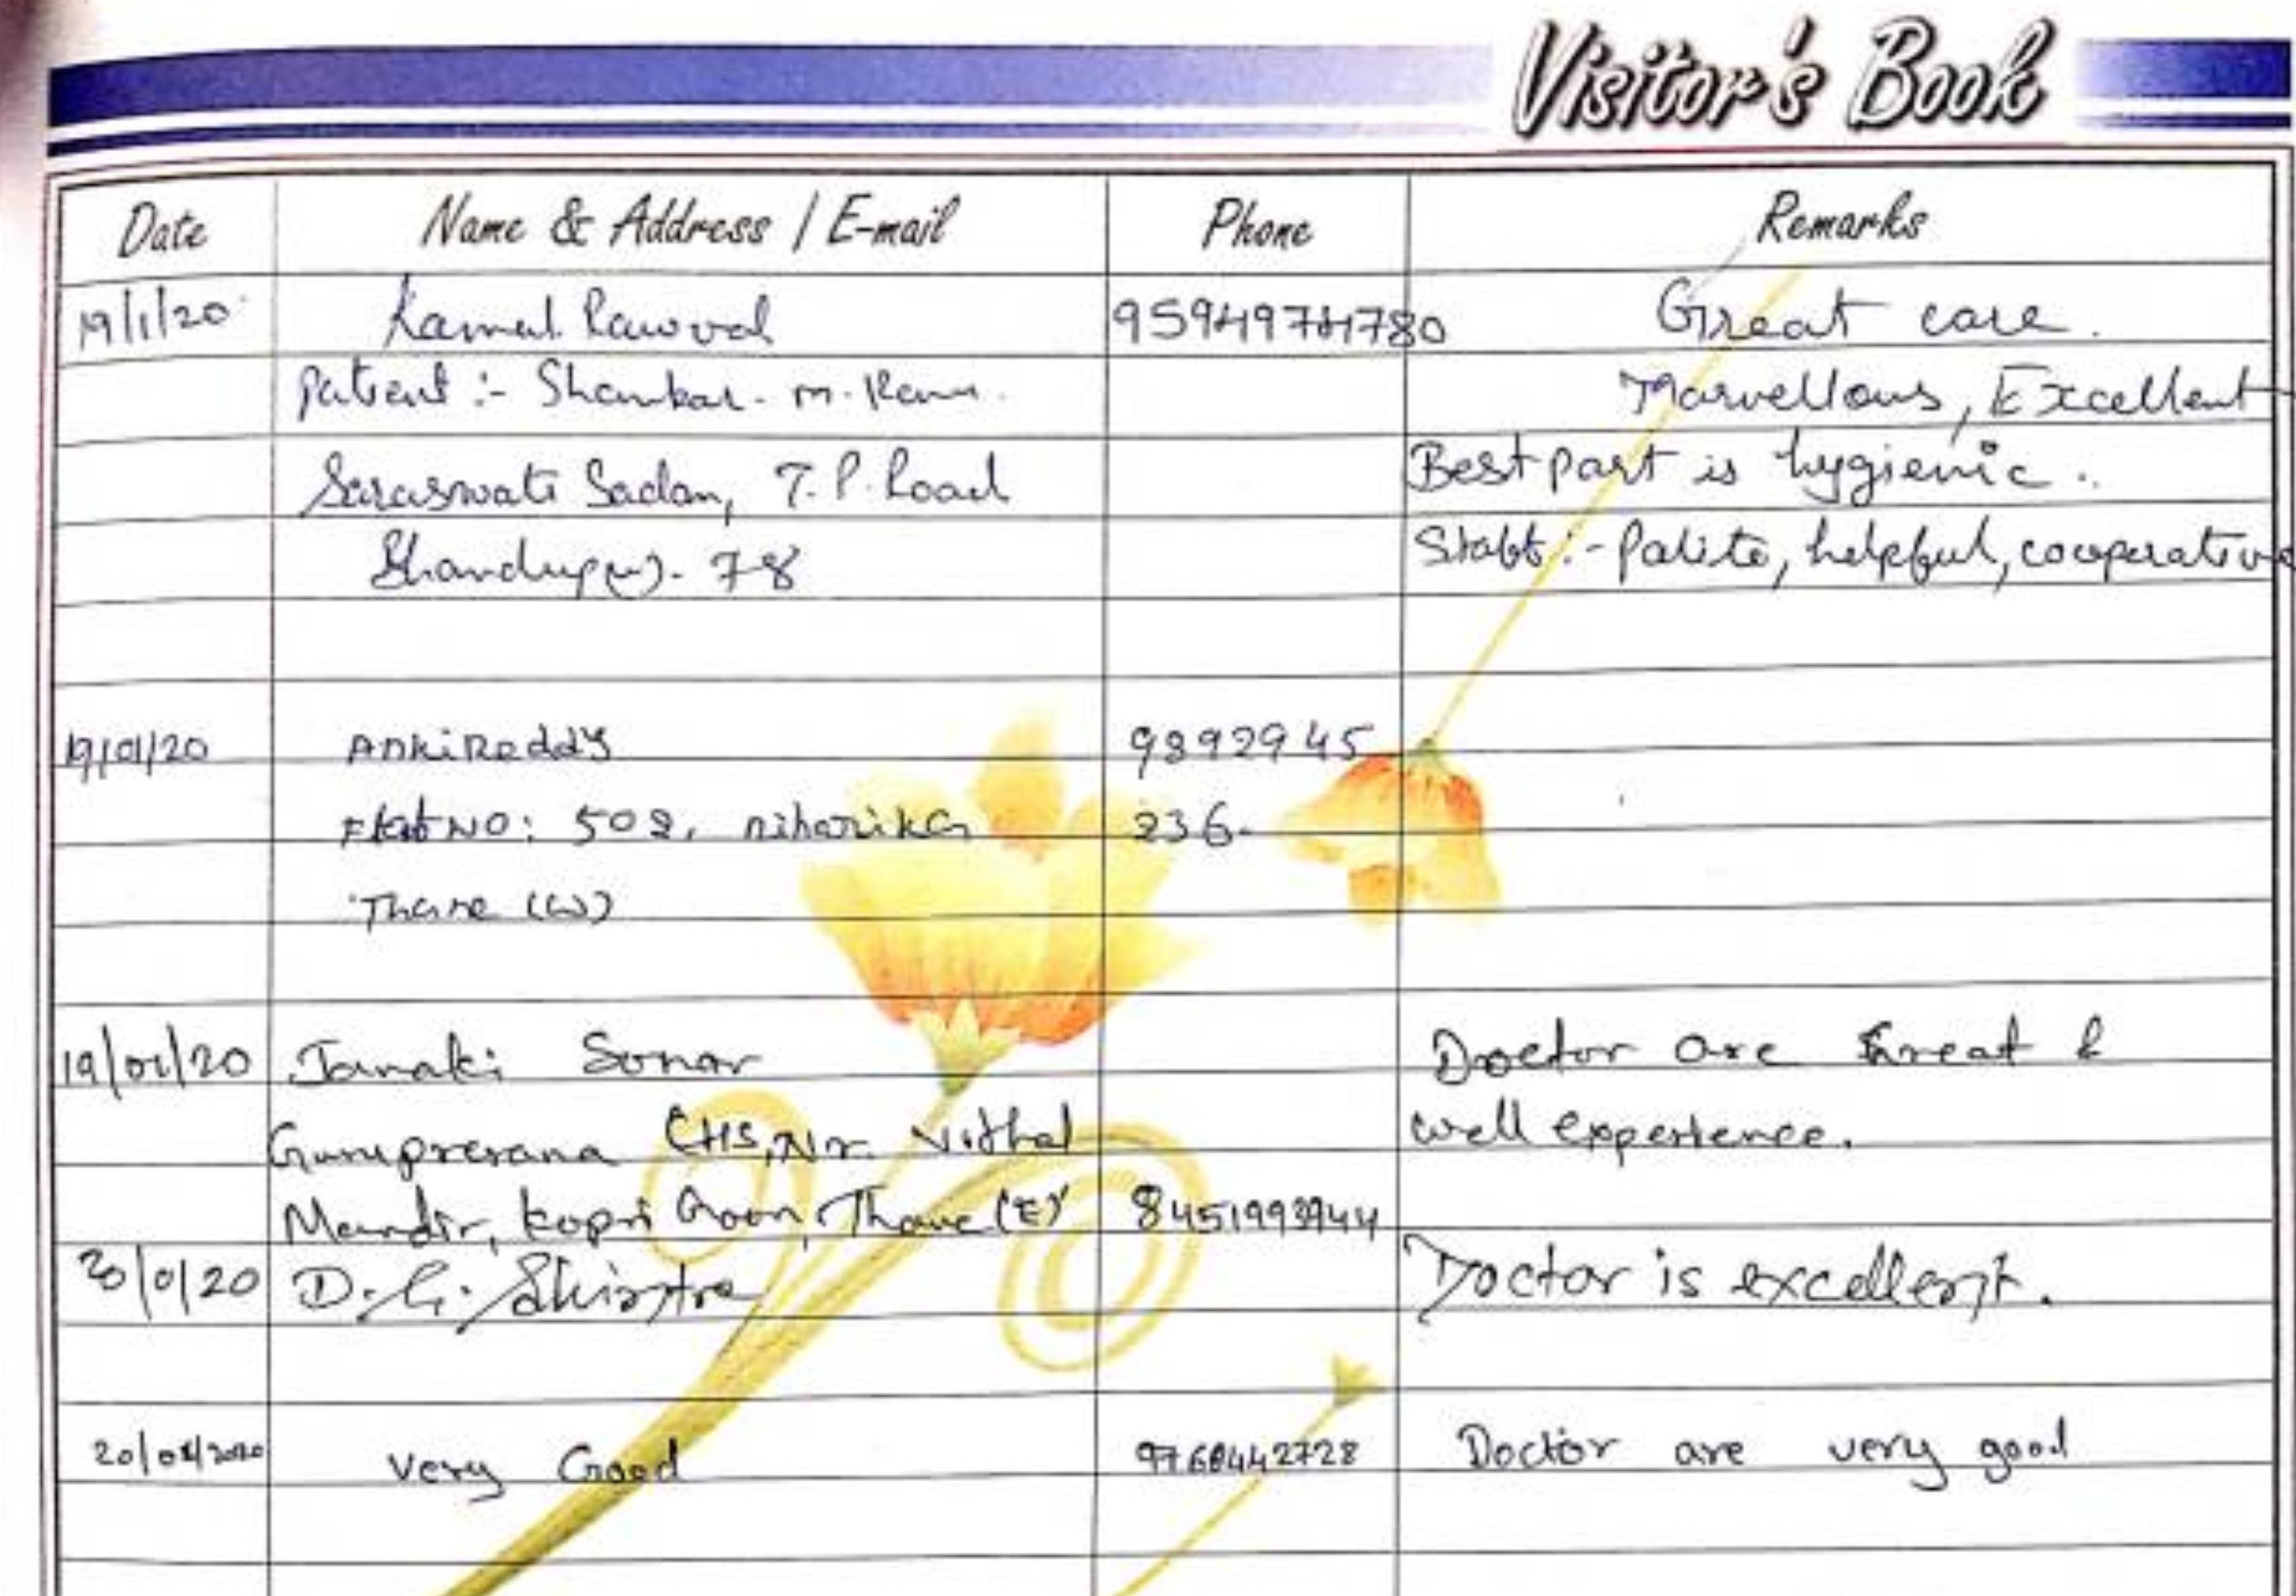 Visitor's Book
Date Name & Address / E-mail Phone Remarks
19/1/20 Kamal Great care.
Patient :- Shankar. m. Marvellous, Excellent
Saraswati Sadan, T.P. Road Best part is hygienic.
Bhandup(w). 78 Staff :- Polite, helpful, cooperative
19/01/20 AnkiReddy 9892945
Flat NO: 502, niharika 236.
Thane (W)
19/01/20 Janaki Sonar Doctor are Great &
Guruprerana CHS, Nr. Vitthal well experience.
Mandir, Kopri Gaon, Thane (E)
D. G. Doctor is excellent.
Very Good 9768442728 Doctor are very good